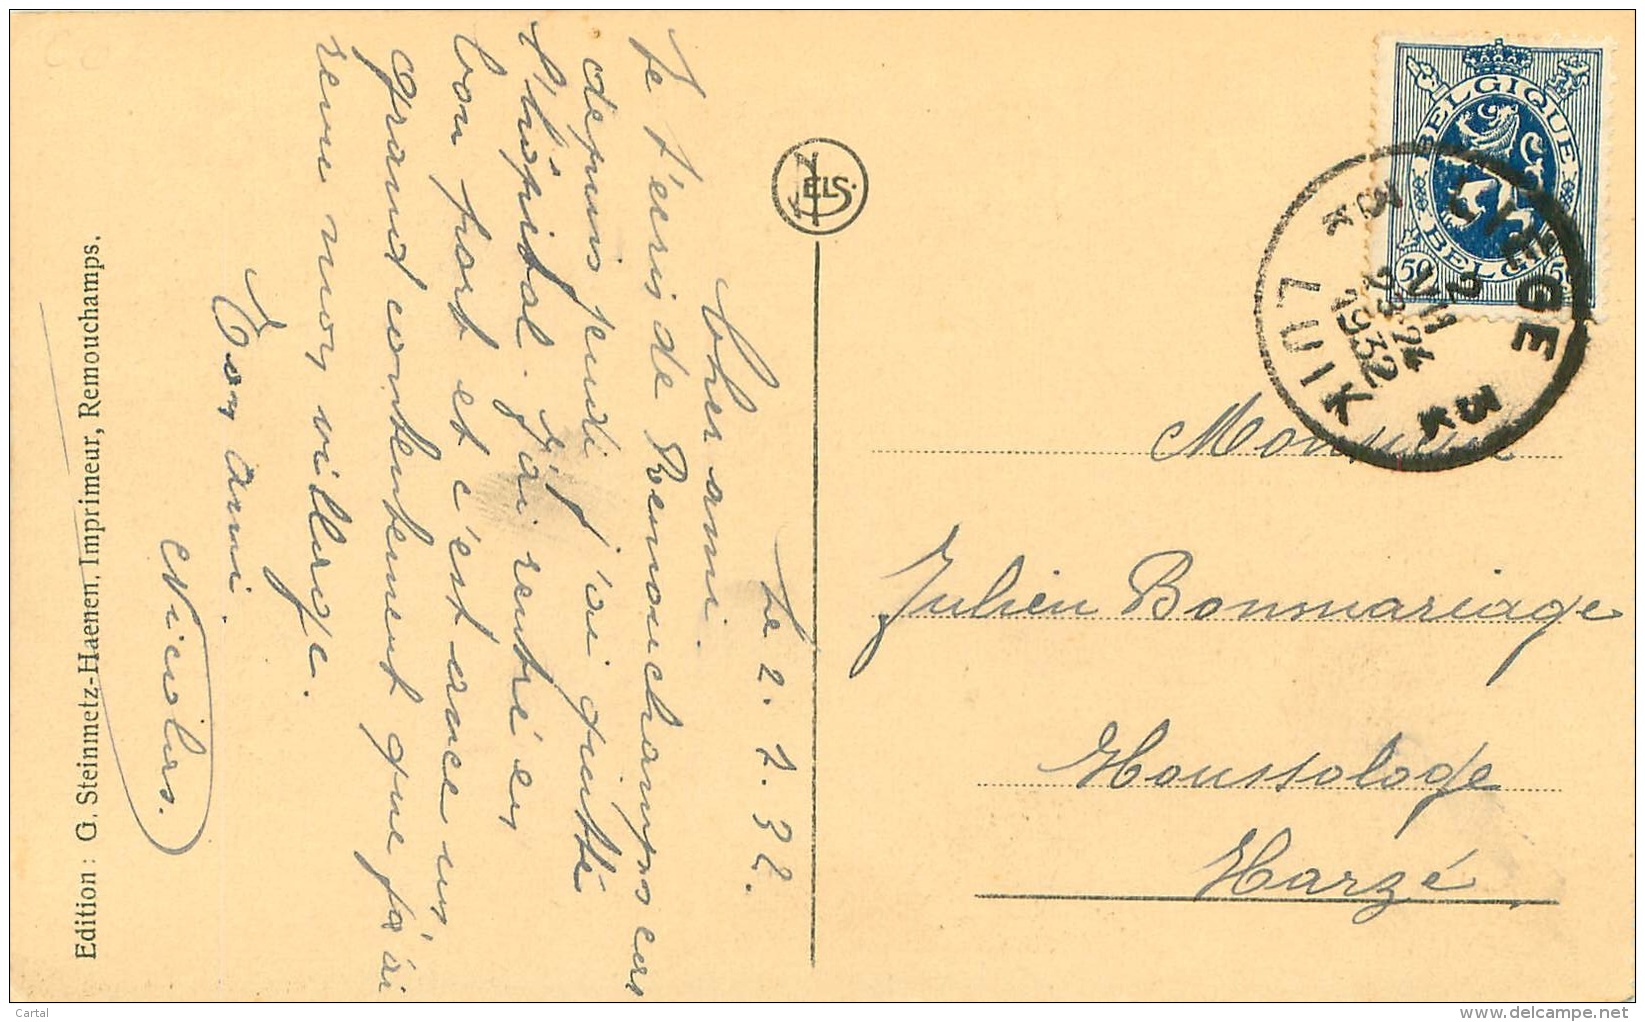 Le 2. 7. 32.
Cher ami.
Je t'ecris de Remouchamps car
depuis jeudi j'ai quitté
l'hôpital. J'ai rentré en
bon port et c'est avec un
grand contentement que j'ai
revu mon village.
Ton ami.
Nicolas.
Edition : G. Steinmetz-Haenen, Imprimeur, Remouchamps.
NELS.
BELGIQUE
BELGIE
50 50
LIEGE
2
VII
23-24
1932
LUIK
Monsieur
Julien Bonmariage
Houssologe
Harzé
Cartal
delcampe.net